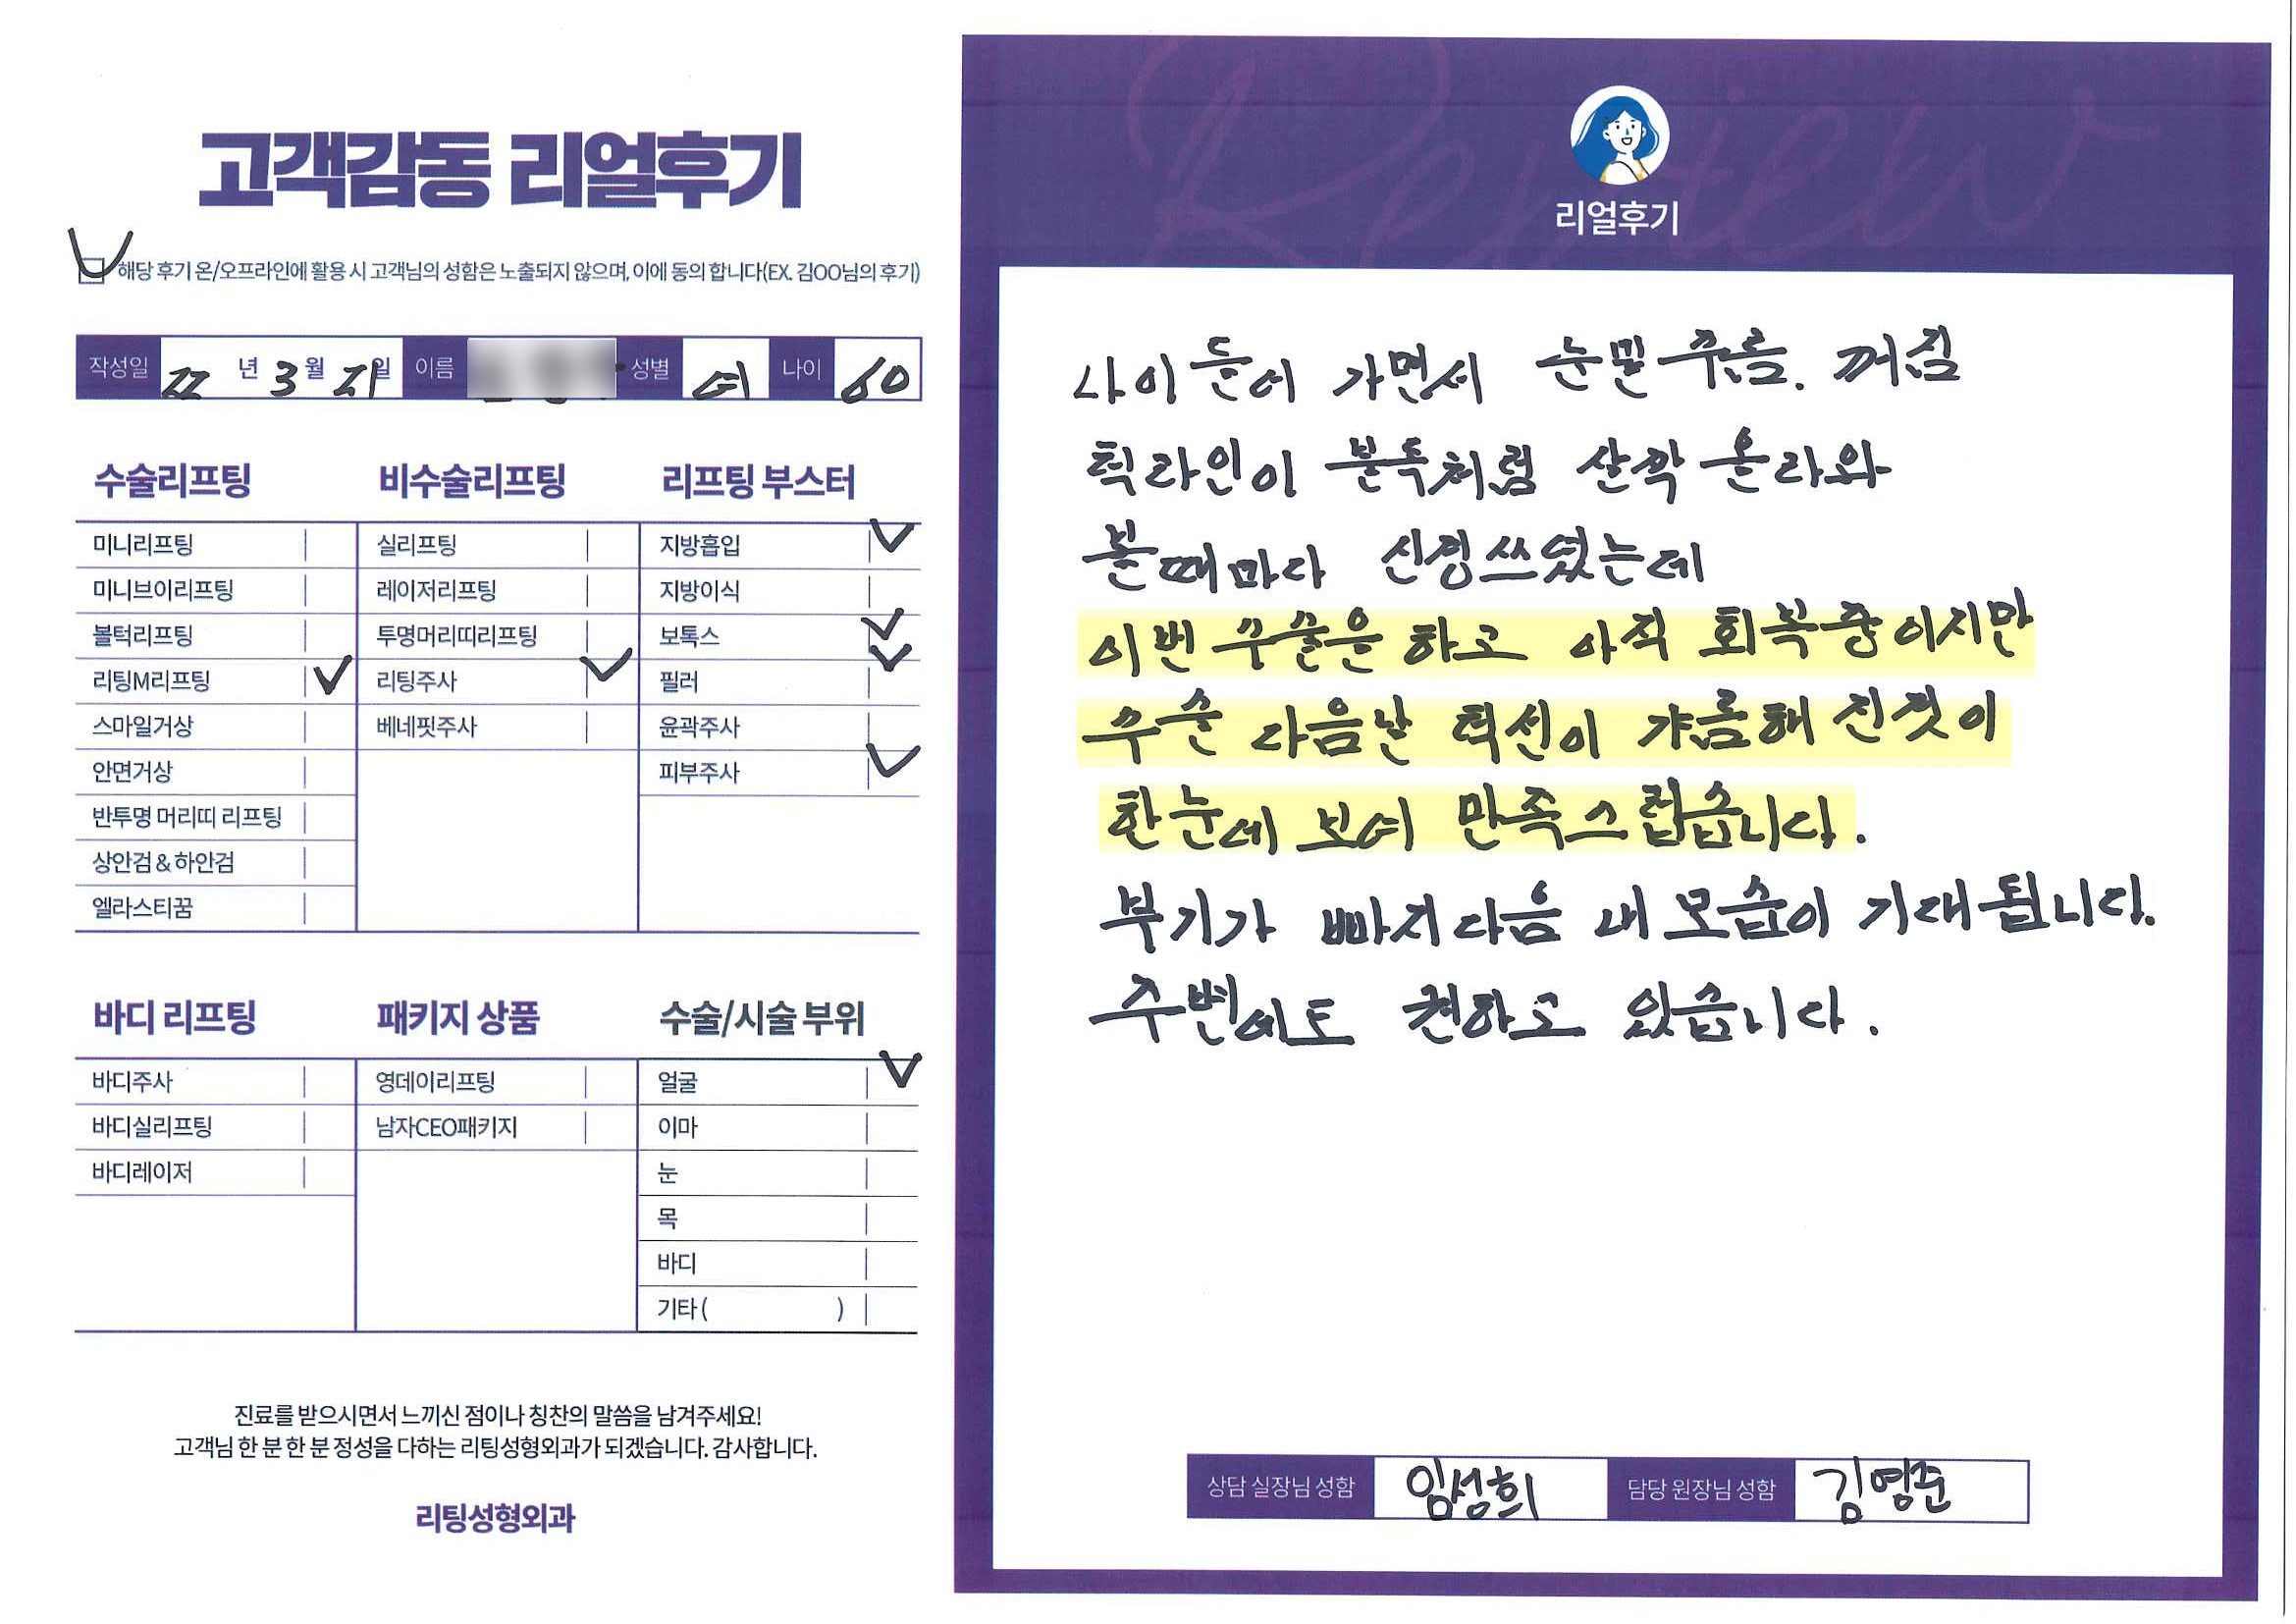 고객감동 리얼후기
해당 후기 온/오프라인에 활용 시 고객님의 성함은 노출되지 않으며, 이에 동의 합니다(EX. 김OO님의 후기)
작성일 22 년 3 월 21 일 이름 성별 여 나이 60
수술리프팅
미니리프팅
미니브이리프팅
볼턱리프팅
리팅M리프팅
스마일거상
안면거상
반투명 머리띠 리프팅
상안검 & 하안검
엘라스티꿈
비수술리프팅
실리프팅
레이저리프팅
투명머리띠리프팅
리팅주사
베네핏주사
리프팅 부스터
지방흡입
지방이식
보톡스
필러
윤곽주사
피부주사
바디 리프팅
바디주사
바디실리프팅
바디레이저
패키지 상품
영데이리프팅
남자CEO패키지
수술/시술 부위
얼굴
이마
눈
목
바디
기타 ( )
진료를 받으시면서 느끼신 점이나 칭찬의 말씀을 남겨주세요!
고객님 한 분 한 분 정성을 다하는 리팅성형외과가 되겠습니다. 감사합니다.
리팅성형외과
Review
리얼후기
나이 들어 가면서 눈밑 주름. 꺼짐
턱라인이 불독처럼 살짝 올라와
볼때마다 신경쓰였는데
이번 수술을 하고 아직 회복중이지만
수술 다음날 턱선이 갸름해 진것이
한눈에 보여 만족스럽습니다.
부기가 빠지 다음 내 모습이 기대됩니다.
주변에도 권하고 있습니다.
상담 실장님 성함 임성희 담당 원장님 성함 김영준